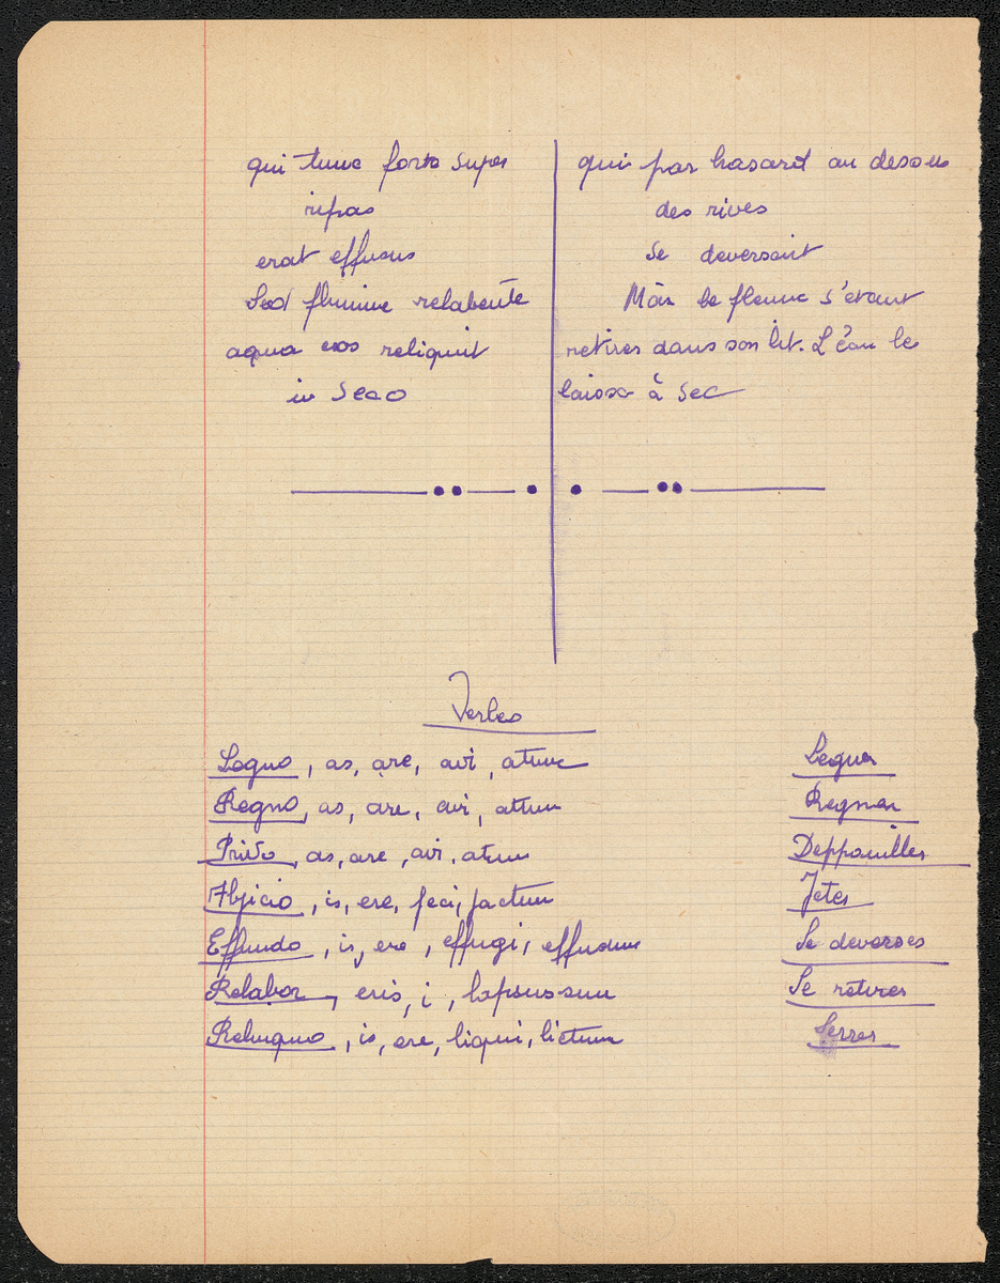 qui tunc forte super
ripas
erat effusus
Sed flumine relabente
aqua eos reliquit
in seco
qui par hasard au desous
des rives
se deversait
Mais le fleuve s'étant
retirer dans son lit. L'eau le
laissa à sec
Verbes
Legno, as, are, avi, atum
Regno, as, are, avi, atum
Privo, as, are, avi, atum
Abjicio, is, ere, jeci, jactum
Effundo, is, ere, effugi, effusum
Relabor, eris, i, lapsus sum
Relinquo, is, ere, liqui, lictum
Leguer
Regner
Deppouiller
Jeter
Se deverser
Se retirer